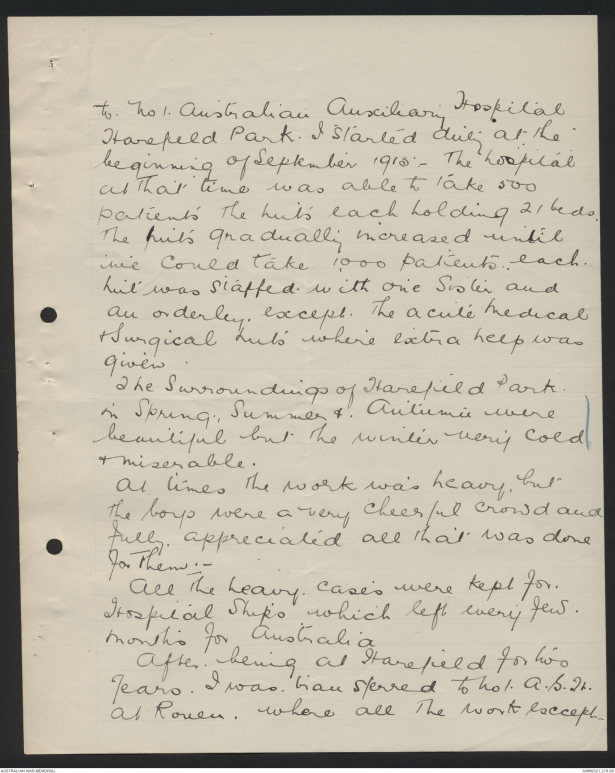 to. No 1. Australian Auxiliary Hospital
Harefield Park. I Started duty at the
beginning of September 1915:- The hospital
at that time was able to take 500
patients the huts each holding 21 beds.
The huts gradually increased until
we could take 1000 patients. each.
hut was staffed. with one Sister and
an orderley. except. The acute Medical
+ Surgical huts where extra help was
given.
The Surroundings of Harefield Park.
in Spring., Summer +. Autumn were
beautiful but the winter very cold
+ miserable.
At times the work was heavy, but
the boys were a very cheerful crowd and
fully. appreciated all that was done
for Them:-
All The heavy. cases were kept for.
Hospital Ships which left every few.
months for Australia
After. being at Harefield for two
years. I was. transferred to No 1. A.G.H.
at Rouen. where all The work except-
AUSTRALIAN WAR MEMORIAL